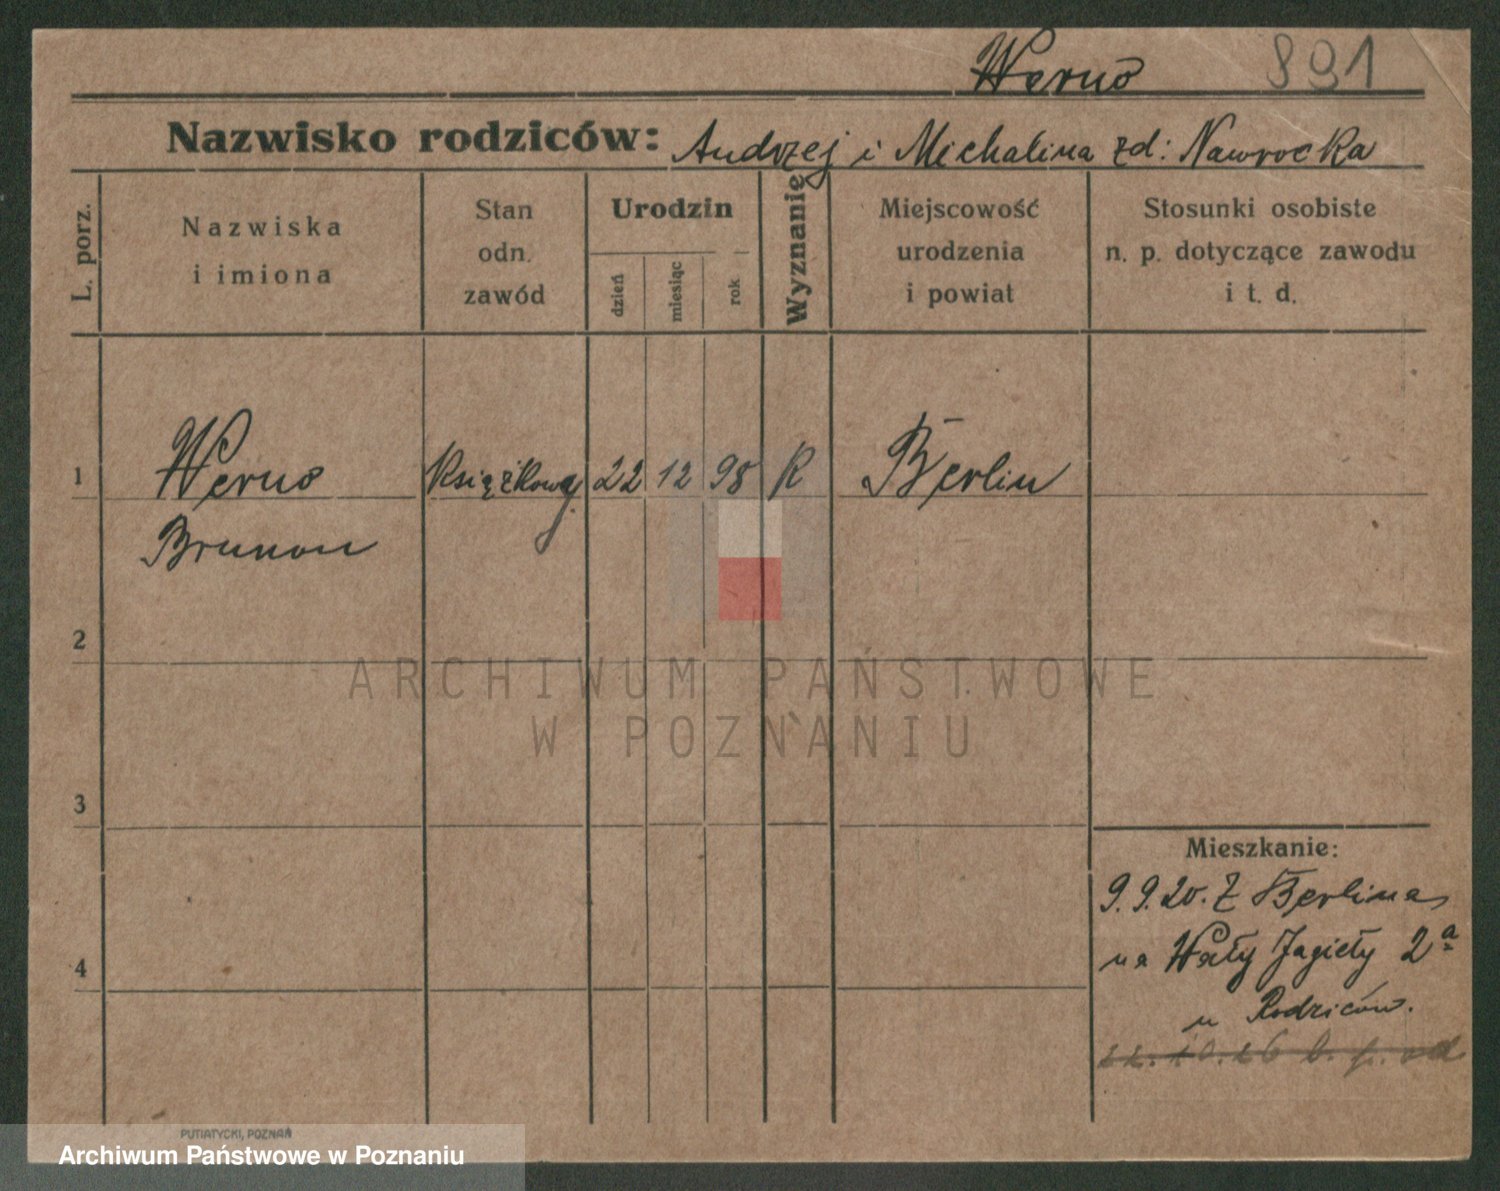 Werno 891
Nazwisko rodziców: Andrzej i Michalina zd: Nawrocka
L. porz.
Nazwiska
i imiona
Stan
odn.
zawód
Urodzin
dzień
miesiąc
rok
Wyznanie
Miejscowość
urodzenia
i powiat
Stosunki osobiste
n. p. dotyczące zawodu
i t. d.
1 Werno Książkowy 22 12 98 R Berlin
Brunon
2
ARCHIWUM PAŃSTWOWE
W POZNANIU
3
Mieszkanie:
9.9.20. Z Berlina
na Wały Jagiełły 2a
4
u Rodziców.
PUTIATYCKI, POZNAŃ
Archiwum Państwowe w Poznaniu